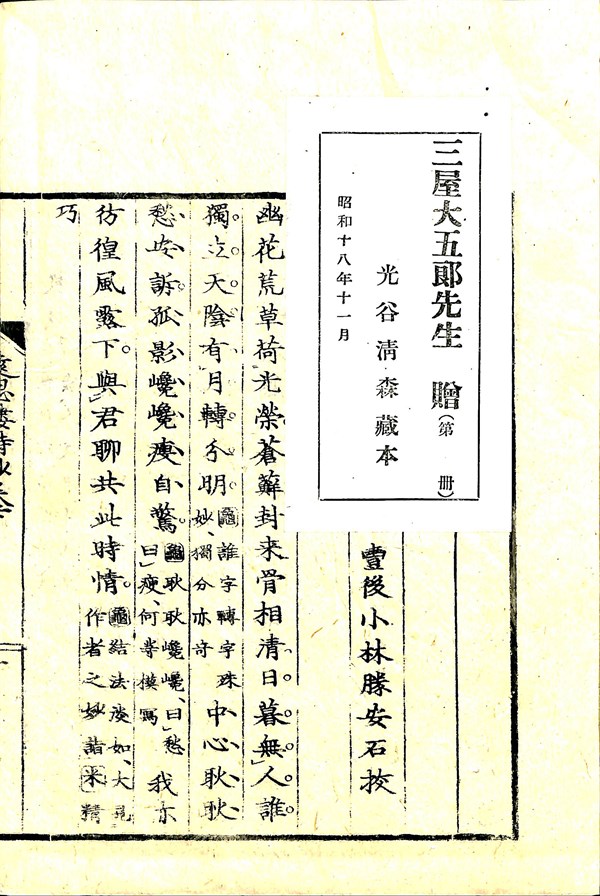 三屋大五郎先生 贈(第 冊)
光谷清森藏本
昭和十八年十一月
豊後小林勝安石挍
幽花荒草荷光榮蒼蘚封来骨相清日暮無人誰
獨立天陰有月轉分明龜誰字轉字殊妙、獨分亦奇中心耿耿
愁安訴孤影巉巉瘦自驚龜耿耿巉巉、曰愁曰瘦、何等摸寫我亦
彷徨風露下與君聊共此時情龜結法淡如、大見作者之妙諳米精
巧